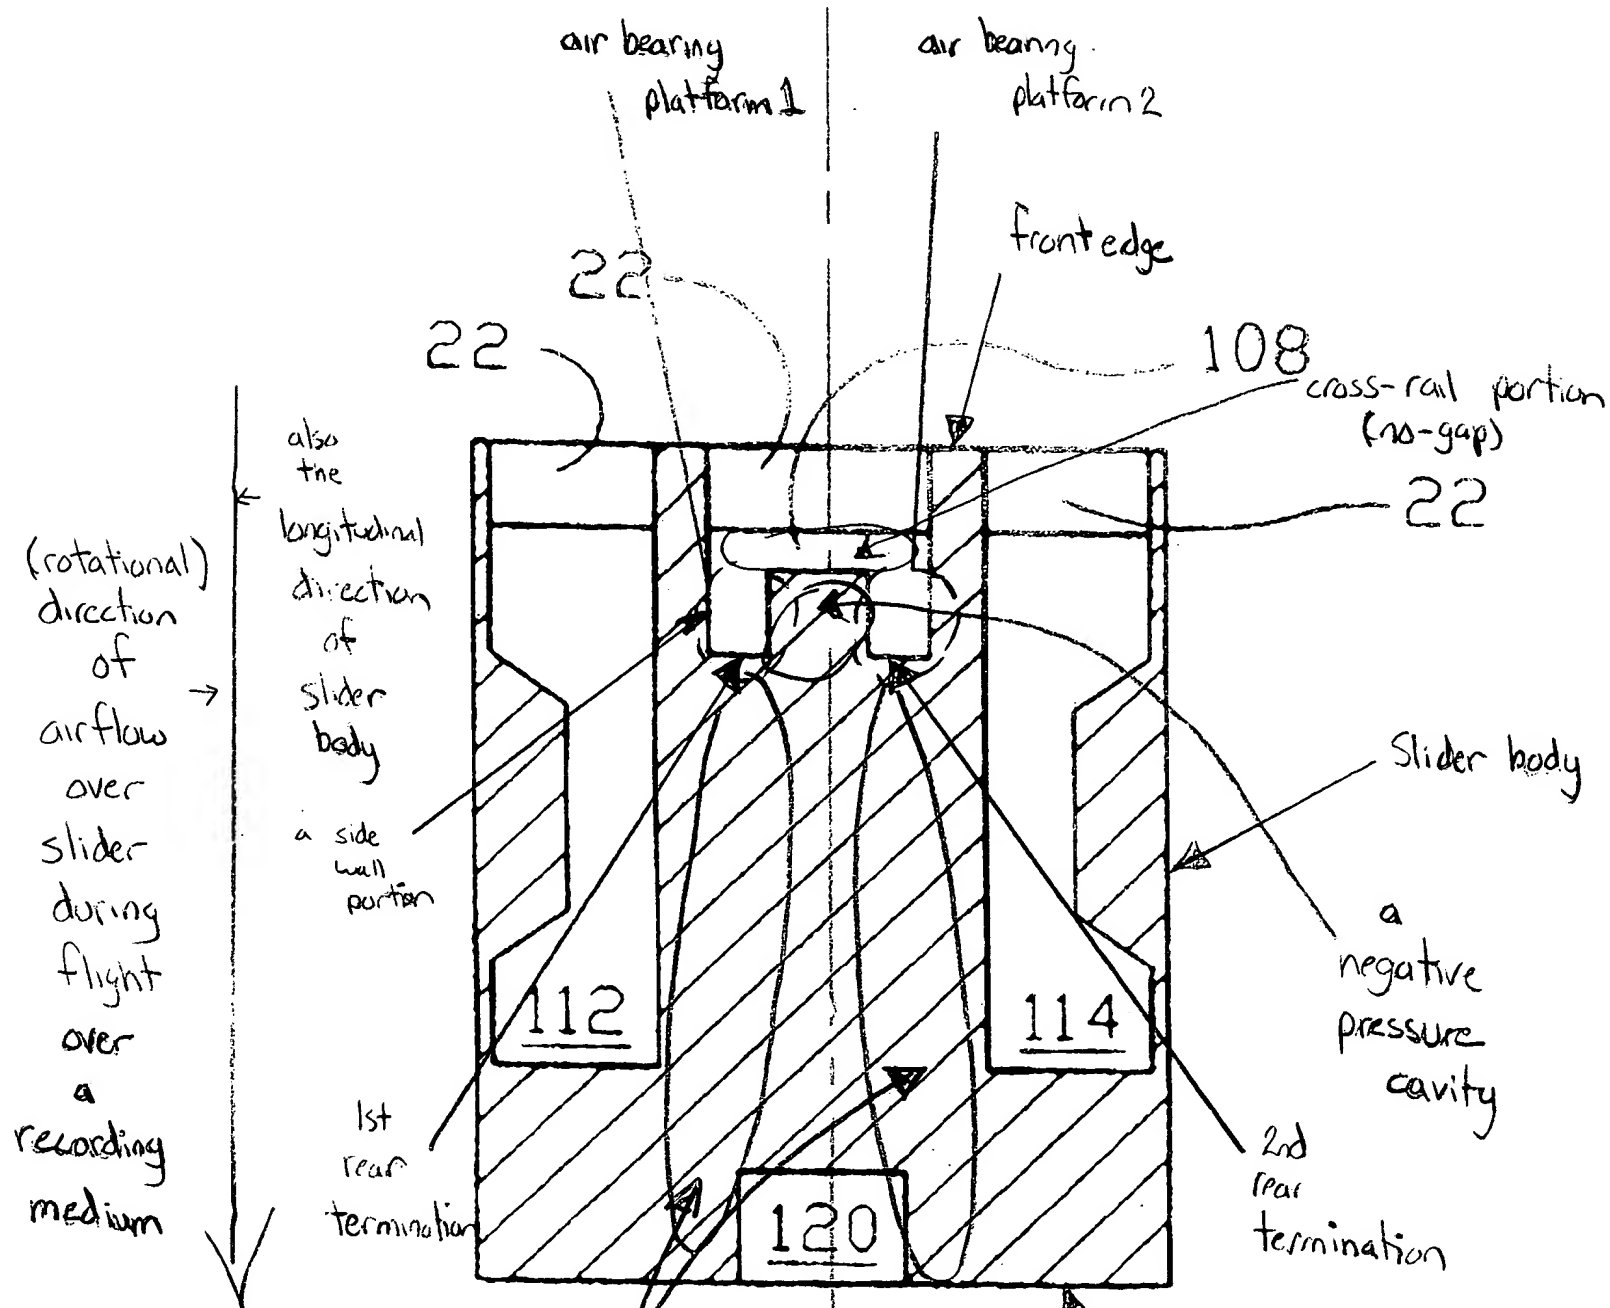 air bearing
platform 1
air bearing
platform 2
front edge
22
22
108
cross-rail portion
(no-gap)
22
also
the
longitudinal
direction
of
slider
body
(rotational)
direction
of
airflow
over
slider
during
flight
over
a
recording
medium
a side
wall
portion
Slider body
a
negative
pressure
cavity
112
114
1st
rear
termination
120
2nd
rear
termination